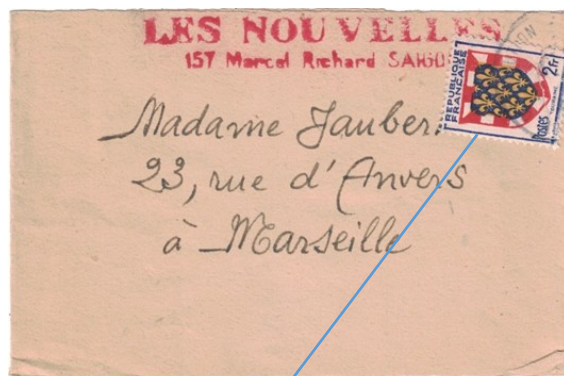 LES NOUVELLES
157 Marcel Richard
REPUBLIQUE
FRANCAISE
2Fr
Postes
Madame
23, rue d'Anvers
à Marseille